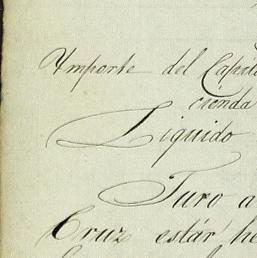 Ymporte del Capita
cienda
Liquido
Juro a
Cruz estár he